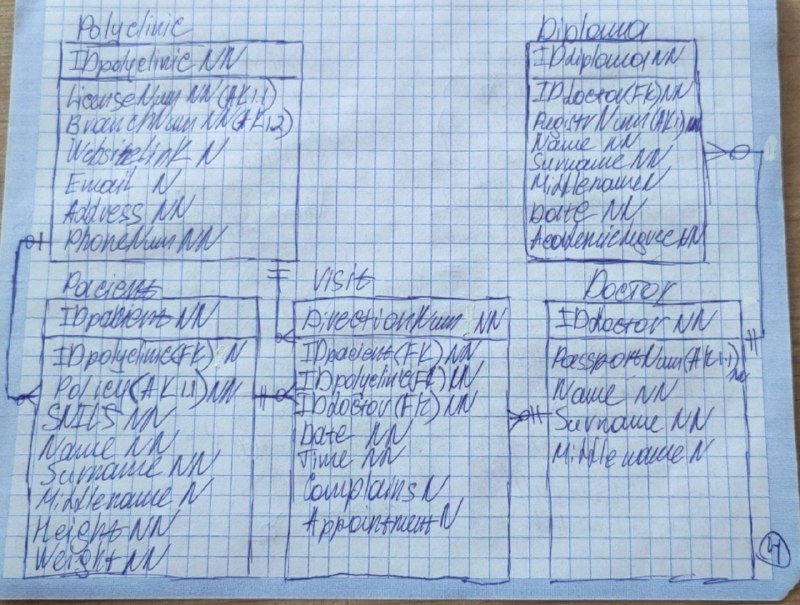 Polyclinic
IDpolyclinic NN
LicenseNum NN(AK1.1)
BranchNum NN(AK1.2)
WebsiteLink N
Email N
Address NN
PhoneNum NN
Diploma
IDdiploma NN
IDdoctor(FK)NN
RegistrNum(AK1.1)NN
Name NN
Surname NN
Middlename N
Date NN
Academicdegree NN
Pacient
IDpacient NN
IDpolyclinic(FK) N
Policy(AK1.1)NN
SNILS NN
Name NN
Surname NN
Middlename N
Height NN
Weight NN
Visit
DirectionNum NN
IDpacient(FK) NN
IDpolyclinic(FK) NN
IDdoctor(FK) NN
Date NN
Time NN
Complains N
Appointment N
Doctor
IDdoctor NN
PassportNum(AK1.1) NN
Name NN
Surname NN
Middlename N